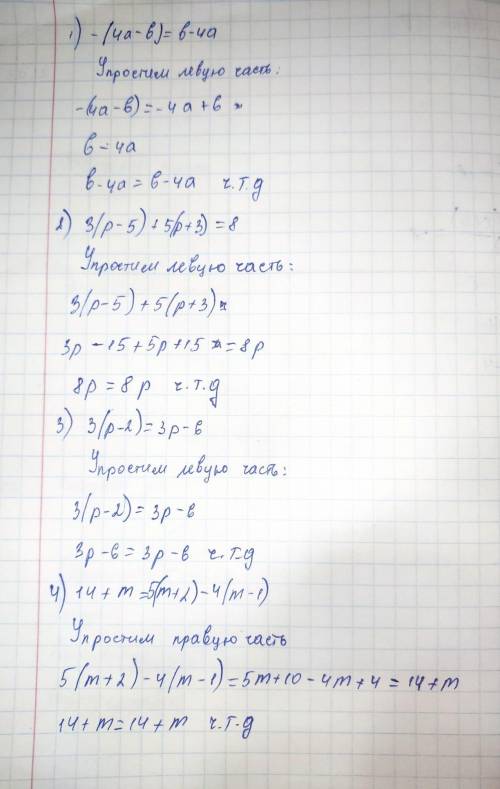 1) -(4a-b)=b-4a
Упростим левую часть:
-(4a-b)=-4a+b
b-4a
b-4a=b-4a ч.т.д
2) 3(p-5)+5(p+3)=8
Упростим левую часть:
3(p-5)+5(p+3)
3p-15+5p+15=8p
8p=8p ч.т.д
3) 3(p-2)=3p-6
Упростим левую часть:
3(p-2)=3p-6
3p-6=3p-6 ч.т.д
4) 14+m=5(m+2)-4(m-1)
Упростим правую часть
5(m+2)-4(m-1)=5m+10-4m+4=14+m
14+m=14+m ч.т.д